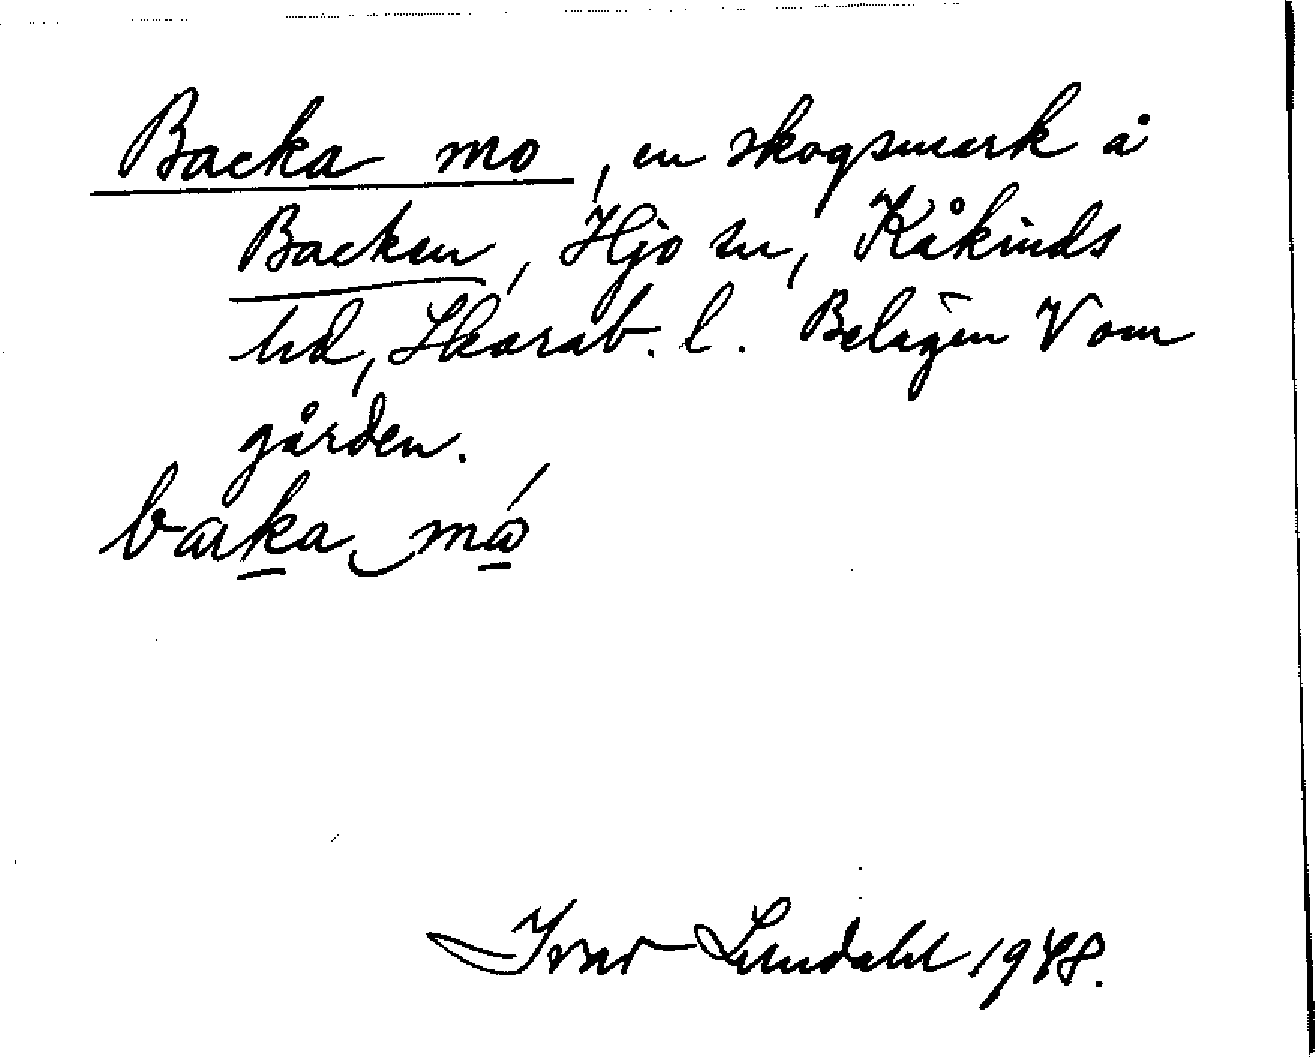 Backa mo, en skogsmark å
Backen, Hjo sn, Kåkinds
hd, Skarab. l. Belägen V om
gården.
baka mó
Ivar Lundahl 1948.